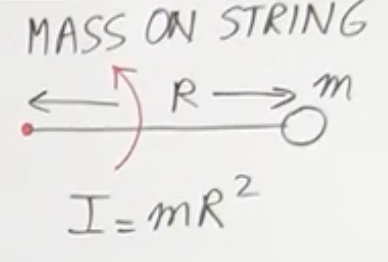 MASS ON STRING
R m
I = mR²